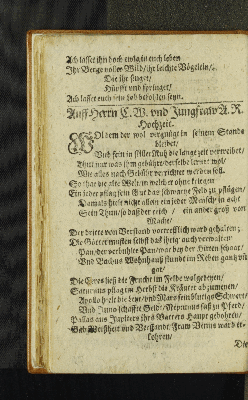 Ach lasset ihn doch ewig in euch leben
Ihr Berge voller Wild/ ihr leichte Vögelein/
Die ihr singet/
Hüpfft vnd springet/
Ach lasset euch sein Lob befohlen seyn.
Auff Herrn C. W. vnd Jungfraw A. R.
Hochzeit.
WOl dem der wol vergnügt in seinem Stande
bleibet/
Vnd fein in stiller Ruh die lange zeit vertreibet/
Thut nur was ihm gebührt/ der selbe lernt wol/
Wie alles nach Gebühr verrichtet werden soll.
So hat die alte Welt/ in welch er ohne kriegen
Ein jeder pflag sein Brot das schwartze Feld zu pflügen/
Damals hielt nicht allein ein jeder Mensch in acht
Sein Thun/ so daß der reich / ein ander groß von
Macht/
Der dritte von Verstand vortrefflich ward gehalten;
Die Götter musten selbst das ihrig auch verwalten
Pan/ der verbuhlte Pan/ war bey der Hürten schaar/
Vnd Bachus Wohnhauß stund im Reben gantz vñ
gar/
Die Ceres ließ die Frucht im Felde wolgedeyen/
Saturnus pflag im Herbst die Kräuter ab zumeyen/
Apollo hielt die leyr/ vnd Mars sein blutigs Schwert/
Vnd Juno schaffte Geld/ Neptunus saß zu Pferd/
Pallas aus Jupiters ihrs Vatters Haupt gebohren/
Gab Weißheit vnd Verstandt. Fraw Venus ward er-
kohren/
Die